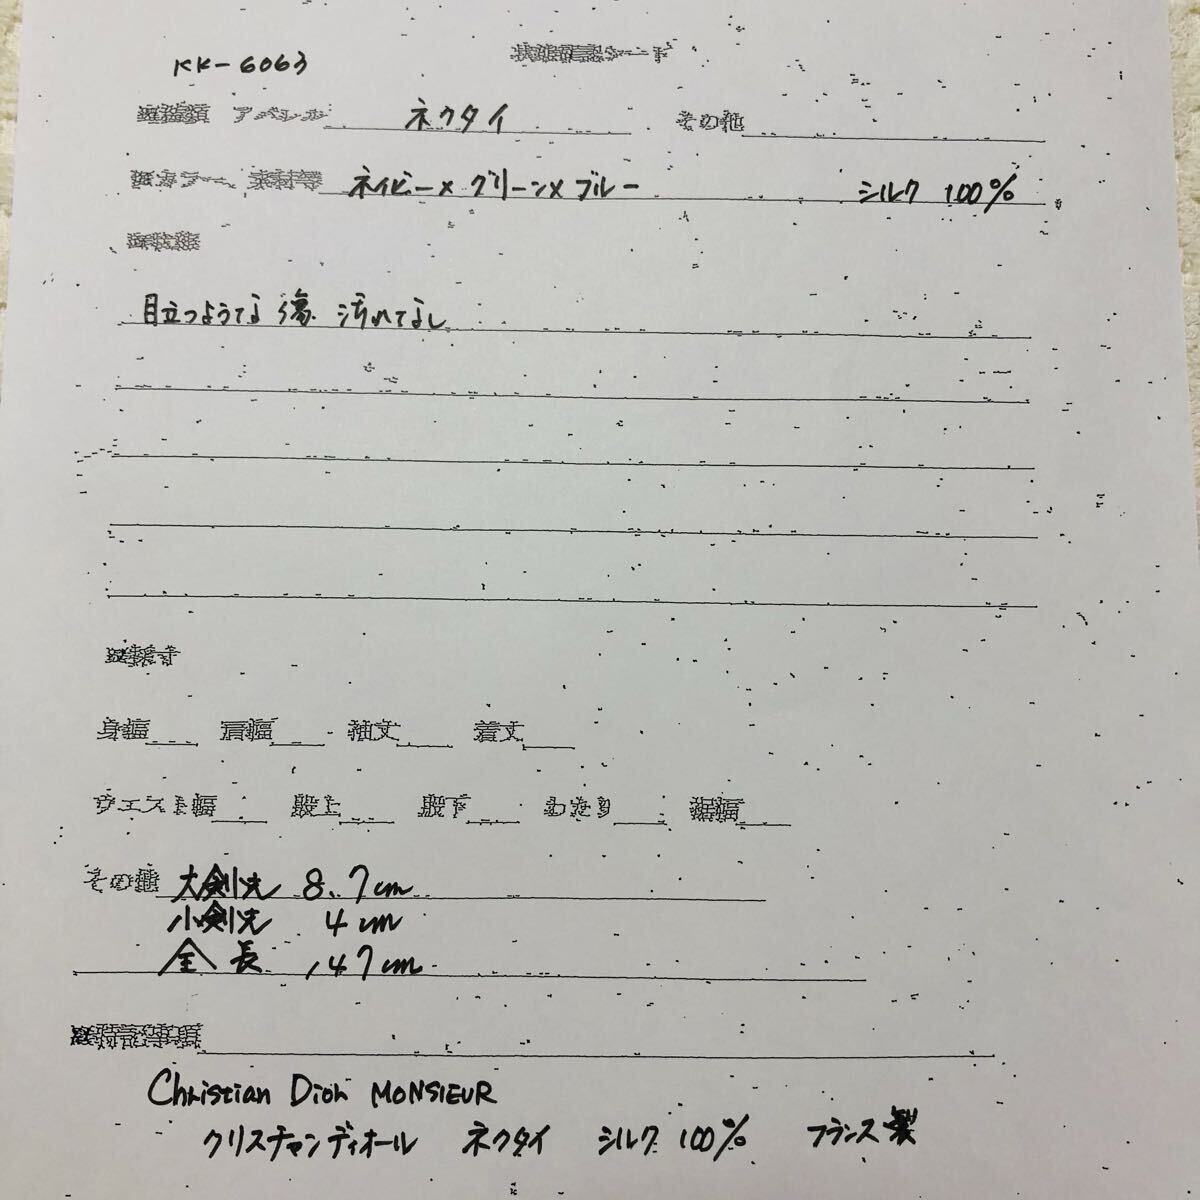 KK-6063
状態確認シート
アパレル ネクタイ その他
カラー、素材等 ネイビー×グリーン×ブルー シルク 100%
目立つような傷 汚れてなし
身幅 肩幅 袖丈 着丈
ウエスト幅 股上 股下 わたり 裾幅
その他 大剣先 8.7cm
小剣先 4cm
全長 147cm
特記事項
Christian Dior MONSIEUR
クリスチャンディオール ネクタイ シルク 100% フランス製